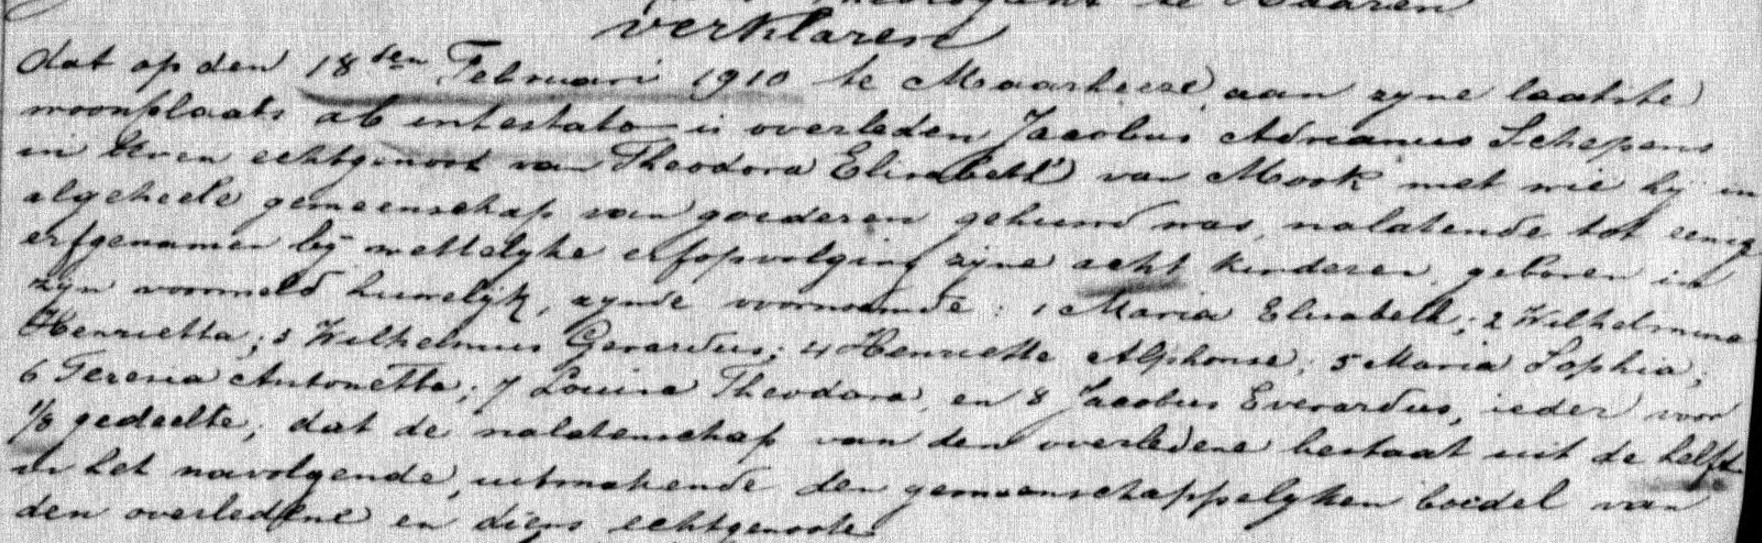 te Haaren
verklaren
dat op den 18den Februari 1910 te Maarheeze, aan zyne laatste
woonplaats ab intestato is overleden Jacobus Adrianus Schepens
in leven echtgenoot van Theodora Elisabeth van Mook met wie hy in
algeheele gemeenschap van goederen gehuwd was, nalatende tot eenige
erfgenamen by wettelyke erfopvolging zyne acht kinderen, geboren in
zyn voormeld huwelyk, zynde voornoemde: 1 Maria Elisabeth; 2 Wilhelmina
Henrietta; 3 Wilhelmus Gerardus; 4 Henriette Alphonse; 5 Maria Sophia;
6 Teresia Antonetta; 7 Louisa Theodora, en 8 Jacobus Everardus, ieder voor
1/8 gedeelte; dat de nalatenschap van den overledene bestaat uit de helft
in het navolgende, uitmakende den gemeenschappelyken boedel van
den overledene en diens echtgenoote